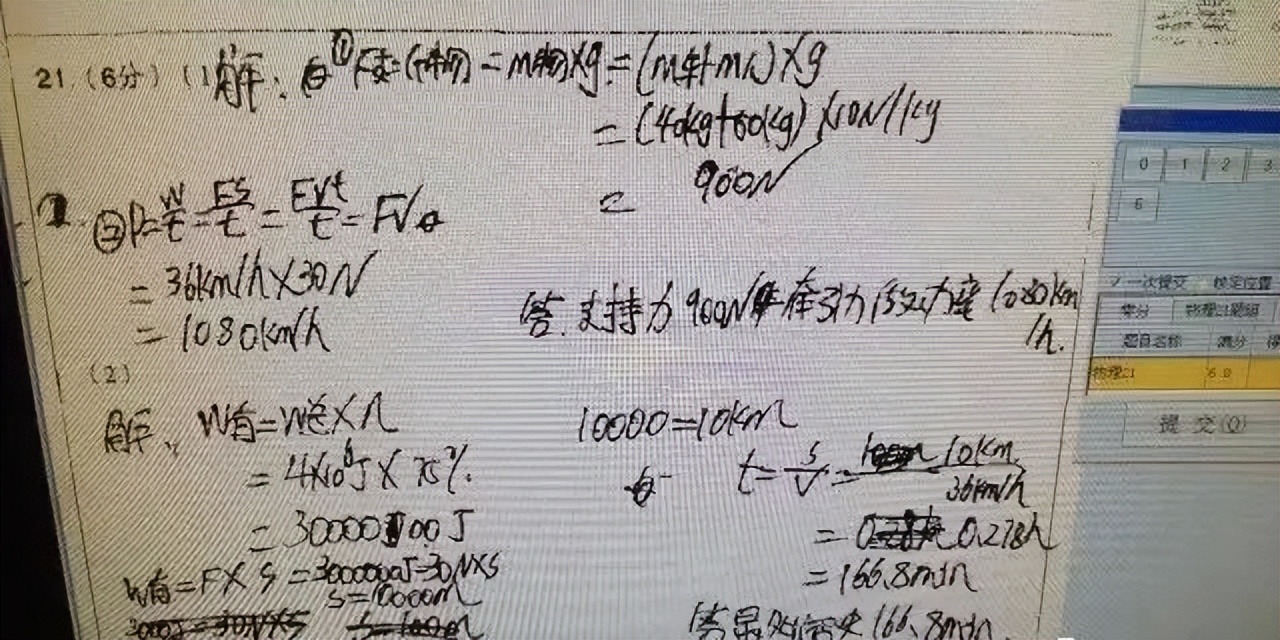 21.(6分)(1
解: ① F支=G车物=m物×g=(m车+m人)×g
=(40kg+50kg)×10N/kg
= 900N
② P=W/t=Fs/t=Fvt/t=Fv
=36km/h×30N
=1080km/h
答.支持力900N牵引力的功率1080km/h.
(2)
解: W有=W总×η
=4×10⁶J×75%
=3000000J
W有=F×S=3000000J=30N×S
S=10000m
10000=10km
t=s/v=10km/36km/h
=0.278h
=166.8min
166.8min.
0 1 2 3
6
一次提交
物理21题组
题目名称 满分
物理21
提 交(Q)